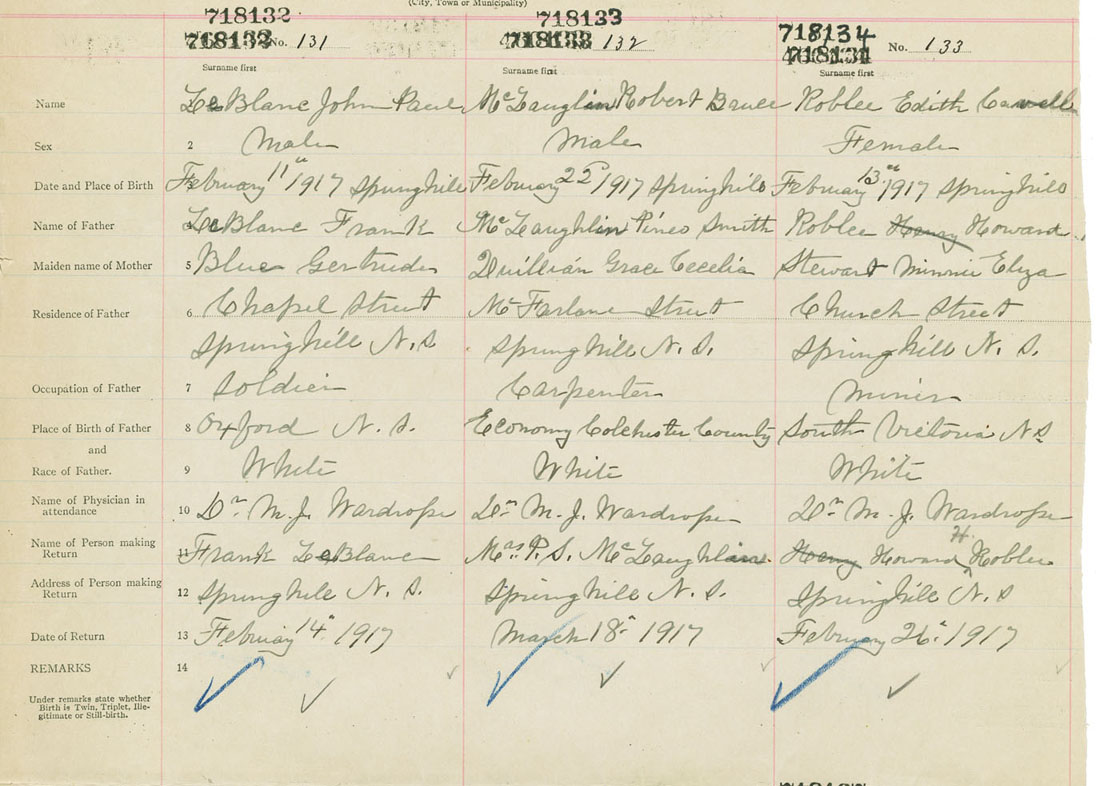 (City, Town or Municipality)
718132 718133 718134
718132 No. 131 718133 132 718134 No. 133
Surname first Surname first Surname first
Name LeBlanc John Paul McLauglin Robert Bruce Roblee Edith Cavell
Sex 2 Male Male Female
Date and Place of Birth February 11th 1917 Springhill February 22nd 1917 Springhill February 13th 1917 Springhill
Name of Father LeBlanc Frank McLaughlin Pineo Smith Roblee Henry Howard
Maiden name of Mother 5 Blue Gertrude Quillian Grace Cecelia Stewart Minnie Eliza
Residence of Father 6 Chapel Street McFarlane Street Church Street
Springhill N.S Springhill N.S. Springhill N.S.
Occupation of Father 7 Soldier Carpenter Miner
Place of Birth of Father 8 Oxford N.S. Economy Colchester County South Victoria N.S
and
Race of Father. 9 White White White
Name of Physician in
attendance 10 Dr M.J. Wardrope Dr M.J. Wardrope Dr M.J. Wardrope
Name of Person making
Return 11 Frank LeBlanc Mrs. P.S. McLaughlin. Henry Howard H. Roblee
Address of Person making
Return 12 Springhill N.S. Springhill N.S. Springhill N.S
Date of Return 13 February 14th 1917 March 18th 1917 February 26th 1917
REMARKS 14
Under remarks state whether
Birth is Twin, Triplet, Ille-
gitimate or Still-birth.